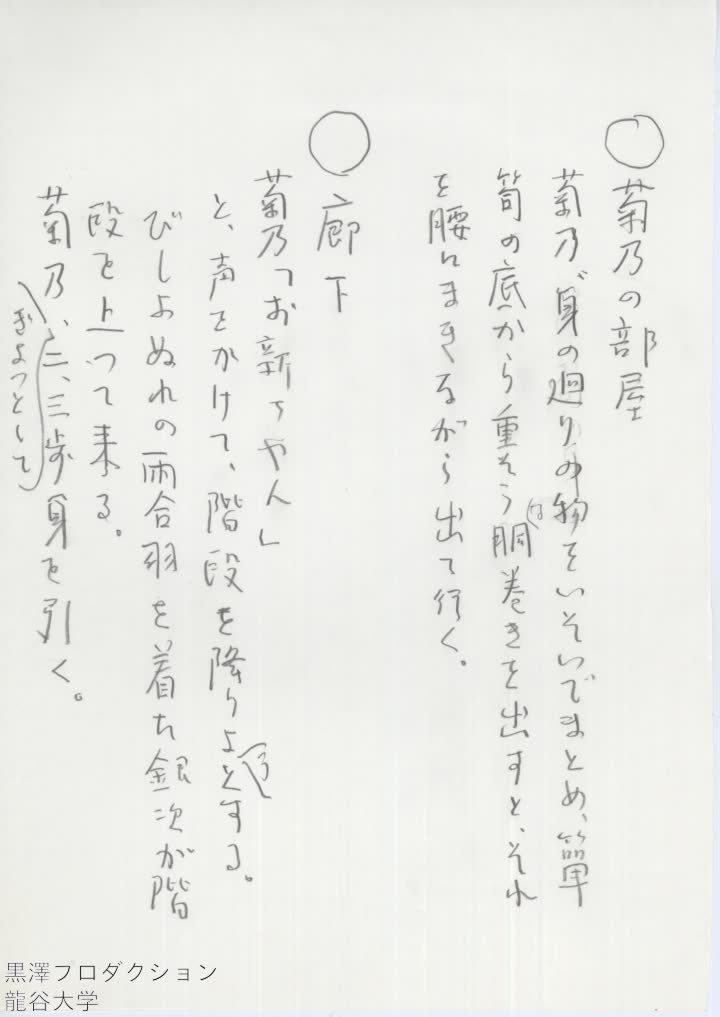 ○菊乃の部屋
菊乃、身の廻りの物をいそいでまとめ、簞
笥の底から重そうな胴巻きを出すと、それ
を腰にまきながら出て行く。
○廊下
菊乃「お新ちやん」
と、声をかけて、階段を降りようとする。
びしよぬれの雨合羽を着た銀次が階
段を上つて来る。
菊乃、ぎよつとして二、三歩身を引く。
黒澤プロダクション
龍谷大学